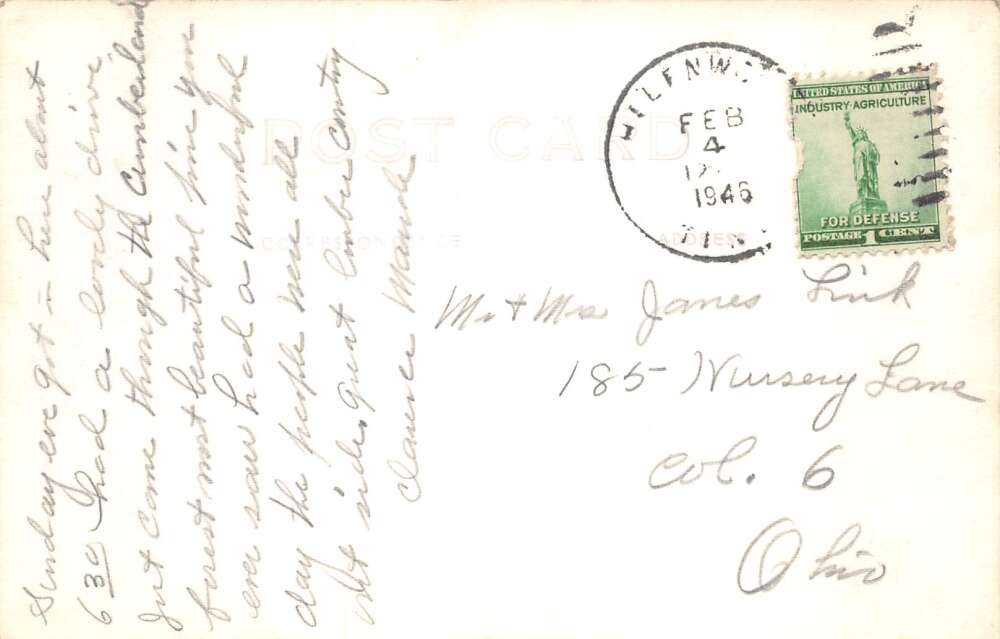 Sunday eve got in here about
6 30 had a lovely drive
Just came through the Cumberland
forest most beautiful pine you
ever saw had a wonderful
day the people were all
out side, great lumber country
Clarence Maude
POST CARD
CORRESPONDENCE
ADDRESS
FEB
4
1946
UNITED STATES OF AMERICA
INDUSTRY·AGRICULTURE
FOR DEFENSE
POSTAGE 1 CENT
Mr + Mrs James Link
185 Nursery Lane
Col. 6
Ohio